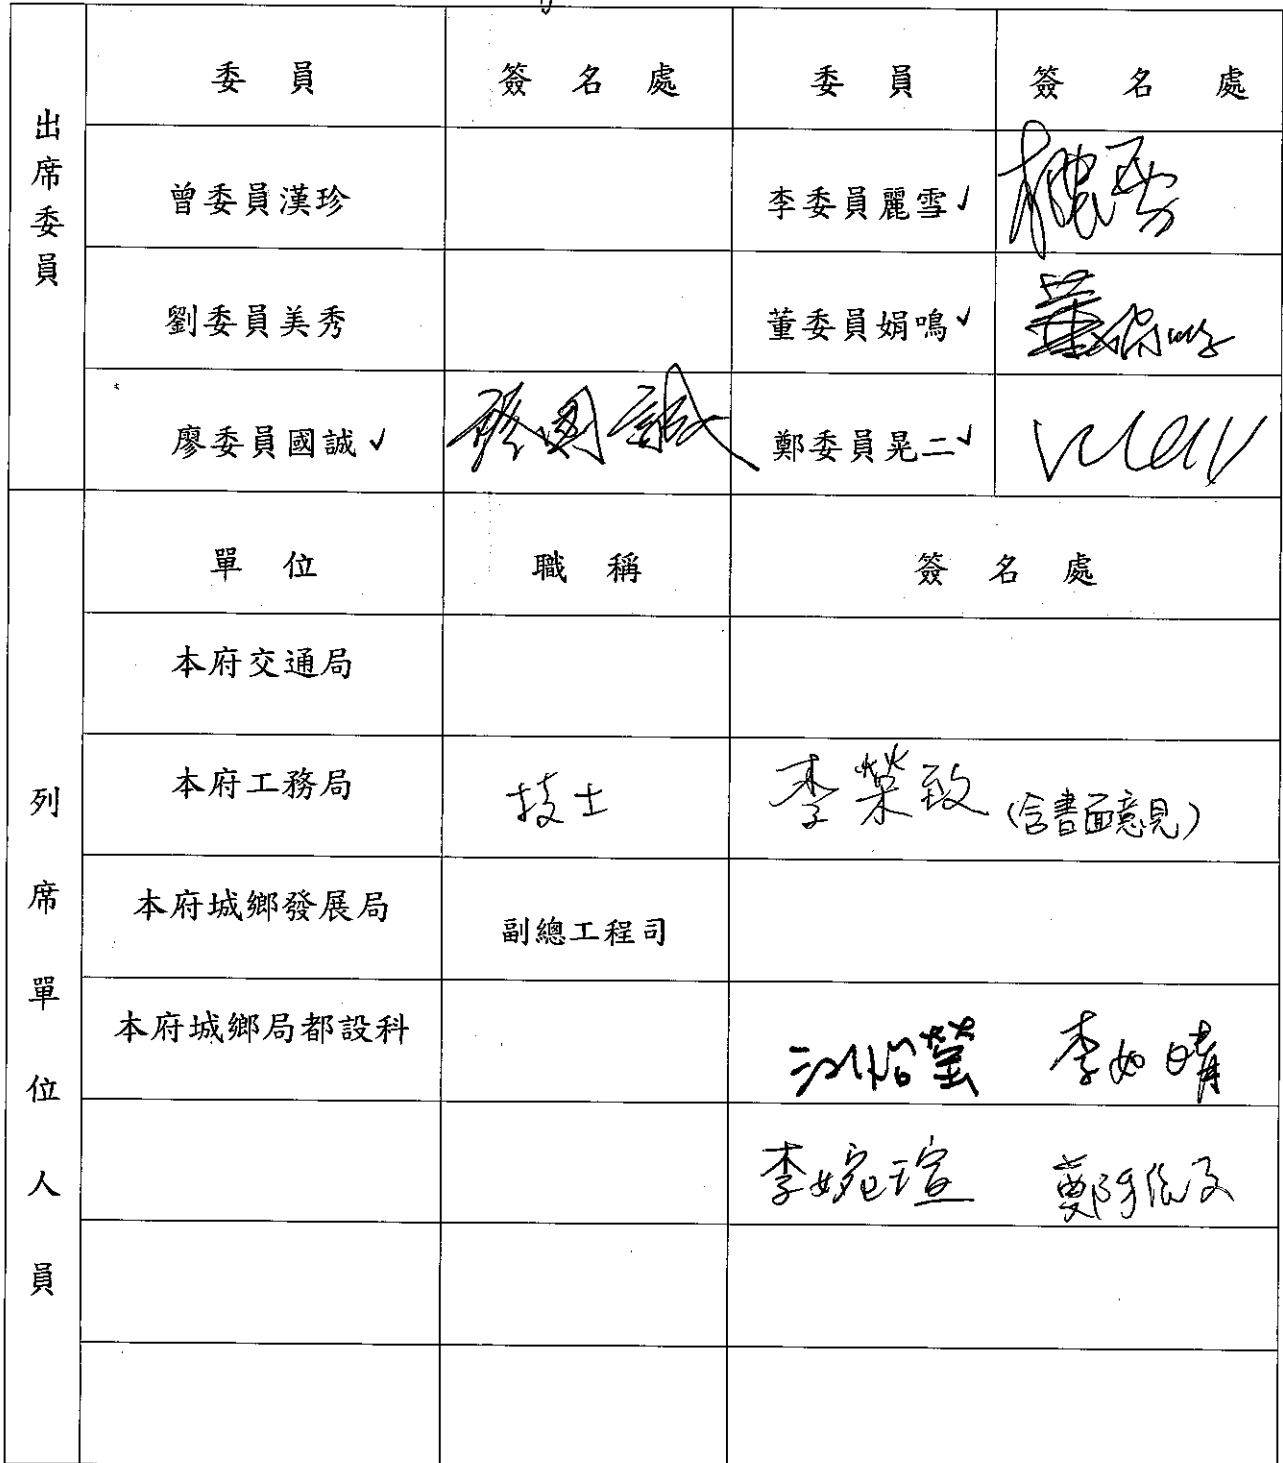 出席委員
委員 簽名處 委員 簽名處
曾委員漢珍 李委員麗雪✓
劉委員美秀 董委員娟鳴✓ 董娟鳴
廖委員國誠✓ 廖國誠 鄭委員晃二✓
列席單位人員
單位 職稱 簽名處
本府交通局
本府工務局 技士 李榮致(含書面意見)
本府城鄉發展局 副總工程司
本府城鄉局都設科 李如晴
李婉瑄